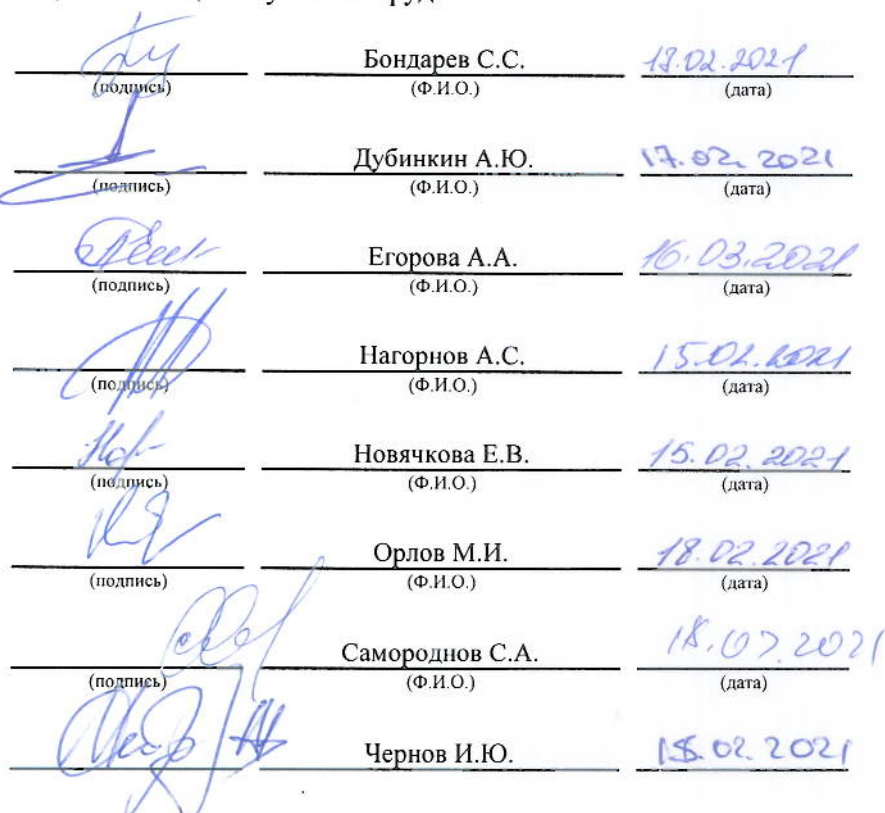 Бондарев С.С.
(подпись) (Ф.И.О.) (дата)
Дубинкин А.Ю. 17.02.2021
(подпись) (Ф.И.О.) (дата)
Егорова А.А. 16.03.2021
(подпись) (Ф.И.О.) (дата)
Нагорнов А.С. 15.02.2021
(подпись) (Ф.И.О.) (дата)
Новячкова Е.В. 15.02.2021
(подпись) (Ф.И.О.) (дата)
Орлов М.И. 18.02.2021
(подпись) (Ф.И.О.) (дата)
Самороднов С.А.
(подпись) (Ф.И.О.) (дата)
Чернов И.Ю.